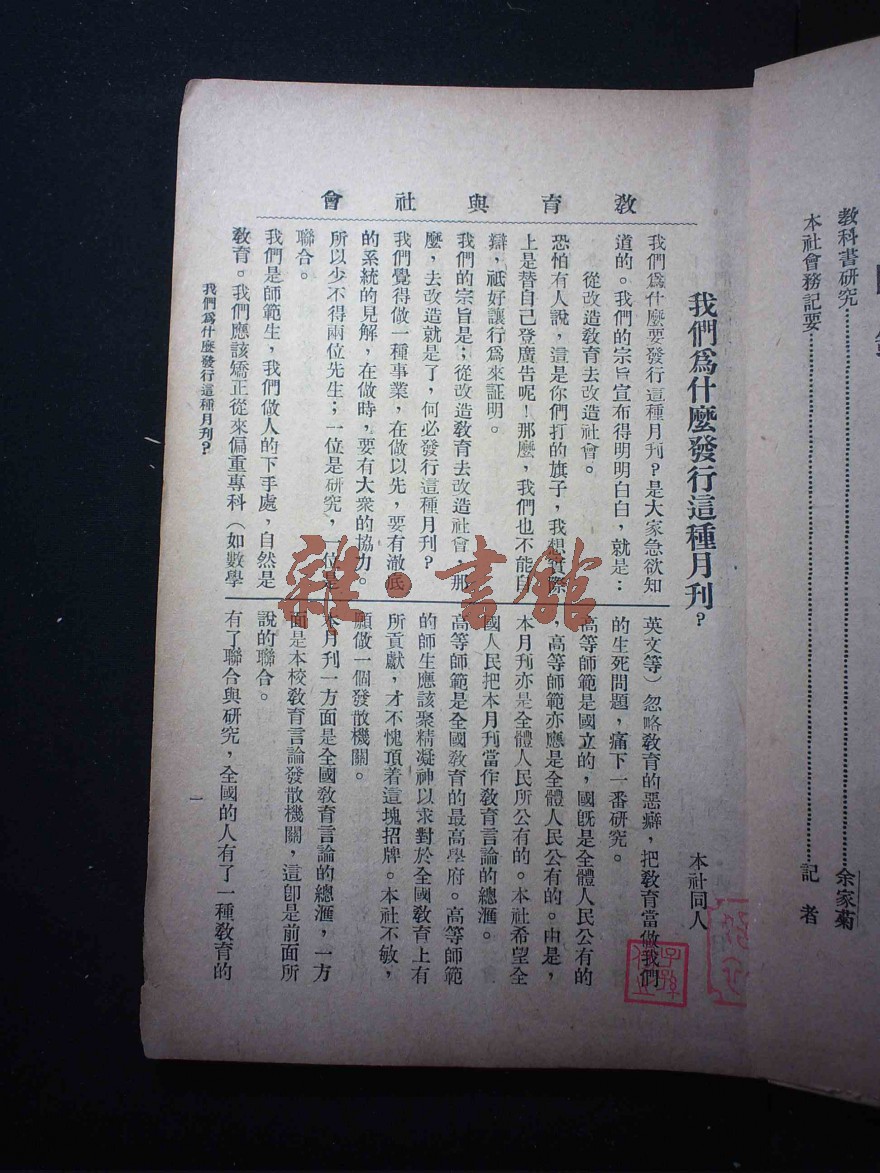 教科書研究……余家菊
本社會務記要……記者
教育與社會
我們爲什麼發行這種月刊？
本社同人
我們爲什麼要發行這種月刊？是大家急欲知
道的。我們的宗旨宣布得明明白白，就是：
從改造教育去改造社會。
恐怕有人說，這是你們打的旗子，我想實際
上是替自己登廣告呢！那麼，我們也不能自
辯，祗好讓行爲來証明。
我們的宗旨是；從改造教育去改造社會，那
麼，去改造就是了，何必發行這種月刊？
我們覺得做一種事業，在做以先，要有澈底
的系統的見解，在做時，要有大衆的協力。
所以少不得兩位先生；一位是研究，一位是
聯合。
我們是師範生，我們做人的下手處，自然是
教育。我們應該矯正從來偏重專科（如數學
英文等）忽略教育的惡癖，把教育當做我們
的生死問題，痛下一番研究。
高等師範是國立的，國既是全體人民公有的
，高等師範亦應是全體人民公有的。由是，
本月刊亦是全體人民所公有的。本社希望全
國人民把本月刊當作教育言論的總滙。
高等師範是全國教育的最高學府。高等師範
的師生應該聚精凝神以求對於全國教育上有
所貢獻，才不愧頂着這塊招牌。本社不敏，
願做一個發散機關。
本月刊一方面是全國教育言論的總滙，一方
面是本校教育言論發散機關，這卽是前面所
說的聯合。
有了聯合與研究，全國的人有了一種教育的
我們爲什麼發行這種月刊？
一
雜·書館